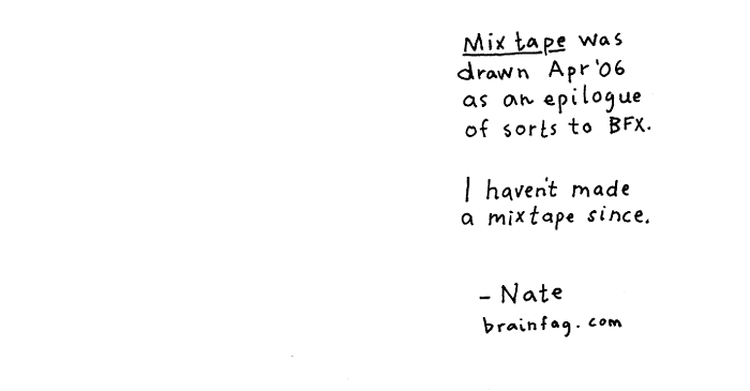 Mix tape was
drawn Apr '06
as an epilogue
of sorts to BFX.
I haven't made
a mixtape since.
- Nate
brainfag.com